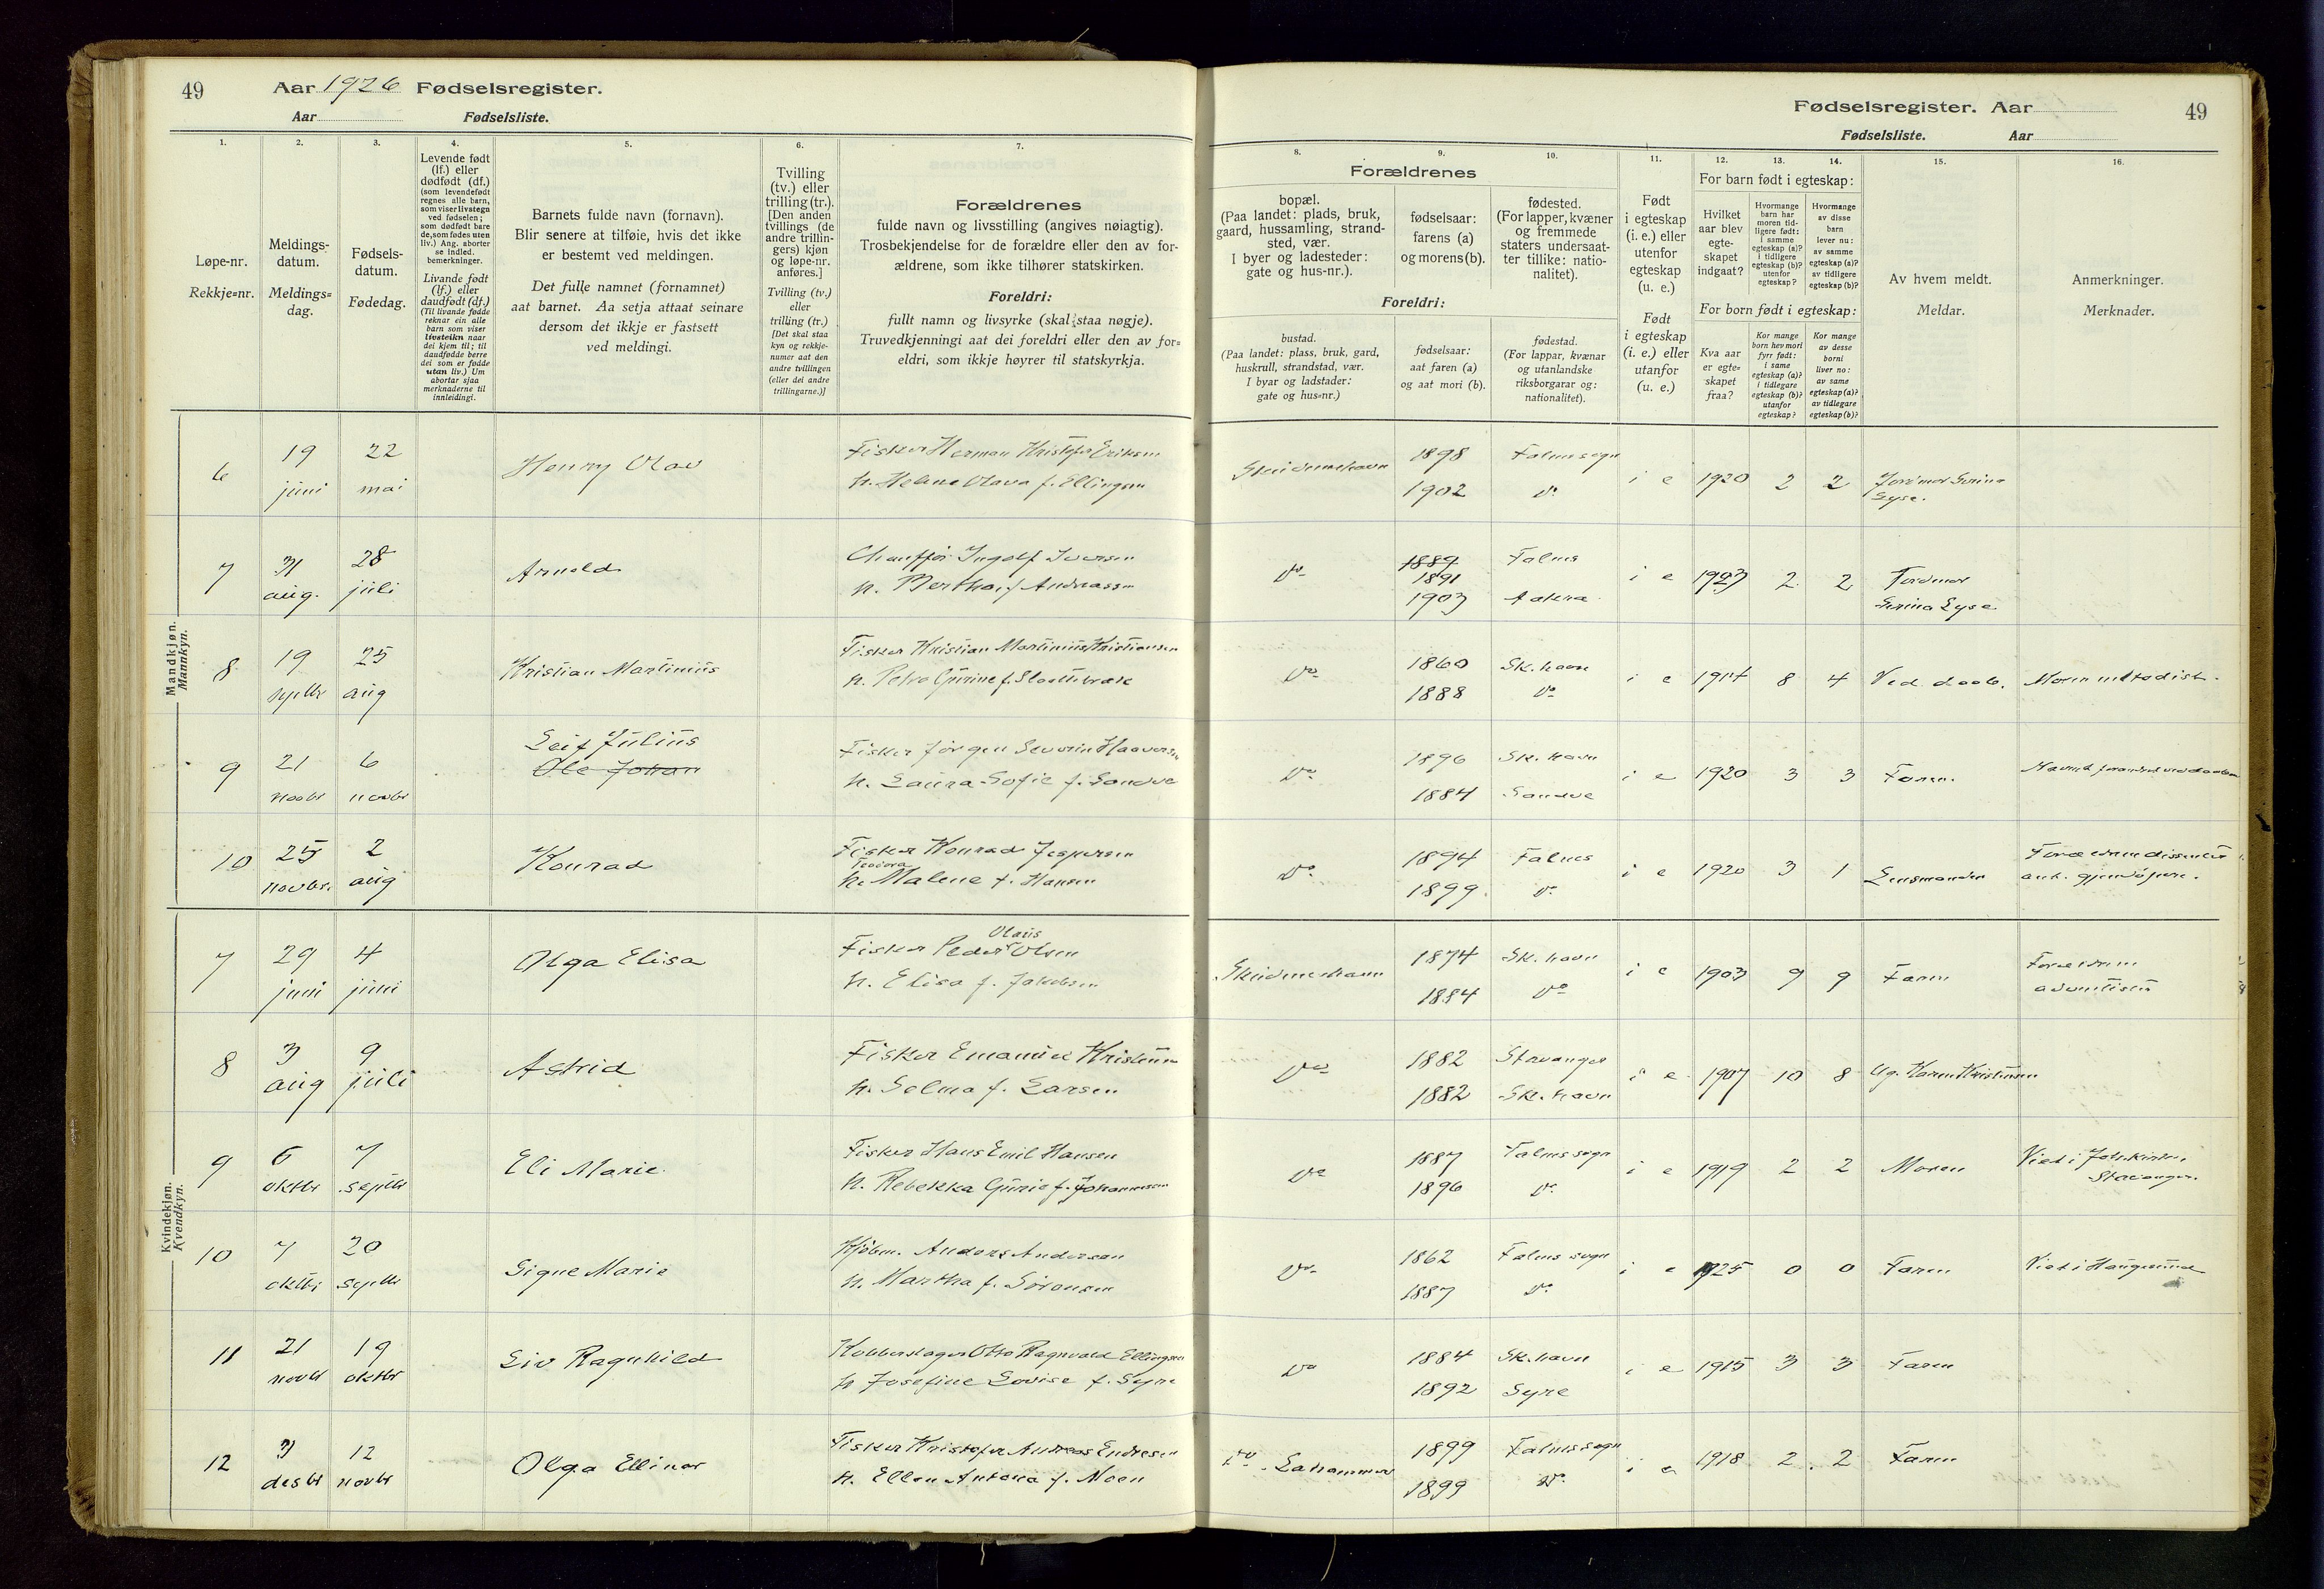 49
Aar 1926 Fødselsregister.
Aar Fødselsliste.
Fødselsregister. Aar
49
Fødselsliste. Aar
1.
Løpe-nr.
Rekkje=nr.
2.
Meldings-
datum.
Meldings=
dag.
3.
Fødsels-
datum.
Fødedag.
4.
Levende født
(lf.) eller
dødfødt (df.)
(som levendefødt
regnes alle barn,
som viser livstegn
ved fødselen;
som dødfødt bare
de, som fødes uten
liv.) Ang. aborter
se indled.
bemerkninger.
Livande født
(lf.) eller
daudfødt (df.)
(Til livande fødde
reknar ein alle
barn som viser
livsteikn naar
dei kjem til; til
daudfødde berre
dei som er fødde
utan liv.) Um
abortar sjaa
merknaderne til
innleidingi.
5.
Barnets fulde navn (fornavn).
Blir senere at tilføie, hvis det ikke
er bestemt ved meldingen.
Det fulle namnet (fornamnet)
aat barnet. Aa setja attaat seinare
dersom det ikkje er fastsett
ved meldingi.
6.
Tvilling
(tv.) eller
trilling (tr.).
[Den anden
tvillings (de
andre trillin-
gers) kjøn
og løpe-nr.
anføres.]
Tvilling (tv.)
eller
trilling (tr.)
[Det skal staa
kyn og rekkje-
numer aat den
andre tvillingen
(eller dei andre
trillingarne.)]
7.
Forældrenes
fulde navn og livsstilling (angives nøiagtig).
Trosbekjendelse for de forældre eller den av for-
ældrene, som ikke tilhører statskirken.
Foreldri:
fullt namn og livsyrke (skal staa nøgje).
Truvedkjenningi aat dei foreldri eller den av for=
eldri, som ikkje høyrer til statskyrkja.
Forældrenes
8.
bopæl.
(Paa landet: plads, bruk,
gaard, hussamling, strand-
sted, vær.
I byer og ladesteder:
gate og hus-nr.).
9.
fødselsaar:
farens (a)
og morens (b).
10.
fødested.
(For lapper, kvæner
og fremmede
staters undersaat-
ter tillike: natio-
nalitet).
Foreldri:
bustad.
(Paa landet: plass, bruk, gard,
huskrull, strandstad, vær.
I byar og ladstader:
gate og hus=nr.)
fødselsaar:
aat faren (a)
og aat mori (b).
fødestad.
(For lappar, kvænar
og utanlandske
riksborgarar og:
nationalitet).
11.
Født
i egteskap
(i. e.) eller
utenfor
egteskap
(u. e.)
Født
i egteskap
(i. e.) eller
utanfor
(u. e.)
12. 13. 14.
For barn født i egteskap:
Hvilket
aar blev
egte-
skapet
indgaat?
Hvormange
barn har
moren tid-
ligere født:
i samme
egteskap (a)?
i tidligere
egteskap (b)?
utenfor
egteskap?
Hvormange
av disse
barn
lever nu:
av samme
egteskap (a)?
av tidligere
egteskap (b)?
For born født i egteskap:
Kva aar
er egte=
skapet
fraa?
Kor mange
born hev mori
fyrr født:
i same
egteskap (a)?
i tidlegare
egteskap (b)?
utanfor
egteskap?
Kor mange
av desse
borni
liver no:
av same
egteskap (a)?
av tidlegare
egteskap (b)?
15.
Av hvem meldt.
Meldar.
16.
Anmerkninger.
Merknader.
Mandkjøn.
Mannkyn.
6 19 juni 22 mai Henry Olav
Fisker Herman Kristofer Eriksen
h. Helene Olava f. Ellingsen
Skudeneshavn 1898 Falnessogn
1902 do
i e 1920 2 2 Jordmor Serina
Syse.
7 31 aug. 28 juli Arnold
Chauffør Ingolf Iversen
h. Bertha f. Andreassen
do 1889 Falnes
1891
1903 Aakra
i e 1923 2 2 Jordmor
Serina Syse
8 19 septbr 25 aug Kristian Martinius
Fisker Kristian Martinius Kristiansen
h. Petra Gurine f. Slaattebræk
do 1860 Sk.havn
1888 do
i e 1914 8 4 Ved daab. Moren metodist.
9 21 novbr 6 novbr Leif Julius
Ole Johan
Fisker Jørgen Severin Haaversen
h. Laura Sofie f. Sandve
do 1896 Sk.havn
1884 Sandve
i e 1920 3 3 Faren. Navnet forandret ved daaben
10 25 novbr. 2 aug Konrad
Fisker Konrad Jespersen
Teodora
h. Malene f. Hansen
do 1894 Falnes
1899. do
i e 1920 3 1 Lensmanden Forældrene dissentere
ant. gjendøpere.
Kvindekjøn.
Kvendkyn.
7 29 juni 4 juni Olga Elisa
Olaus
Fisker Peder Olsen
h. Elisa f. Jakobsen
Skudeneshavn 1874 Sk.havn
1884 do
i e 1903 9 9 Faren Forældrene
adventister
8 3 aug 9 juli Astrid
Fisker Emanuel Kristensen
h. Selma f. Larsen
do 1882 Stavanger
1882 Sk.havn
i e 1907 10 8 Ug. Karen Kristensen
9 6 oktbr 7 septbr Eli Marie
Fisker Hans Emil Hansen
h. Rebekka Gurie f. Johannesen
do 1887 Falnes sogn
1896 do
i e 1919 2 2 Moren Viet i Joh.kirke,
Stavanger.
10 7 oktbr 20 septbr Signe Marie
Kjøbm. Anders Andersen
h. Martha f. Sørensen
do 1862 Falnes sogn
1887 do
i e 1925 0 0 Faren Viet i Haugesund
11 21 novbr 19 oktbr Liv Ragnhild
Kobberslager Otto Ragnvald Ellingsen
h. Josefine Lovise f. Syre
do 1884 Sk.havn
1892 Syre
i e 1915 3 3 Faren
12 3 desbr 12 novbr Olga Ellinor
Fisker Kristofer Andreas Endresen
h. Ellen Antona f. Moen
do Lahammer 1899 Falnessogn
1899 do
i e 1918 2 2 Faren